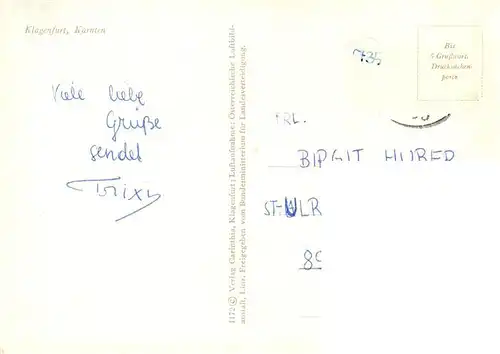 Klagenfurt, Kärnten
Viele liebe
Grüße
sendet
Trixy
1172 © Verlag Carinthia, Klagenfurt; Luftaufnahme: Österreichische Luftbild-
anstalt, Linz. Freigegeben vom Bundesministerium für Landesverteidigung.
735
Bis
5 Grußworte
Drucksachen-
porto
FRL.
BIRGIT
ST.
8c